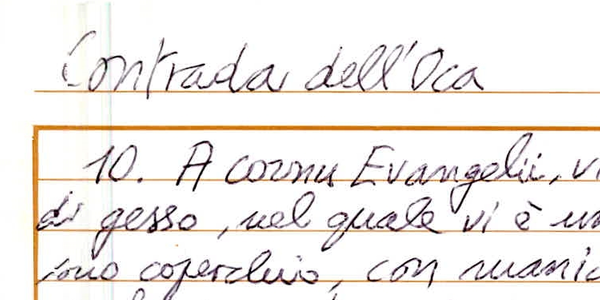 Contrada dell'Oca
10. A cornu Evangelii, v
di gesso, nel quale vi è un
suo coperchio, con manic